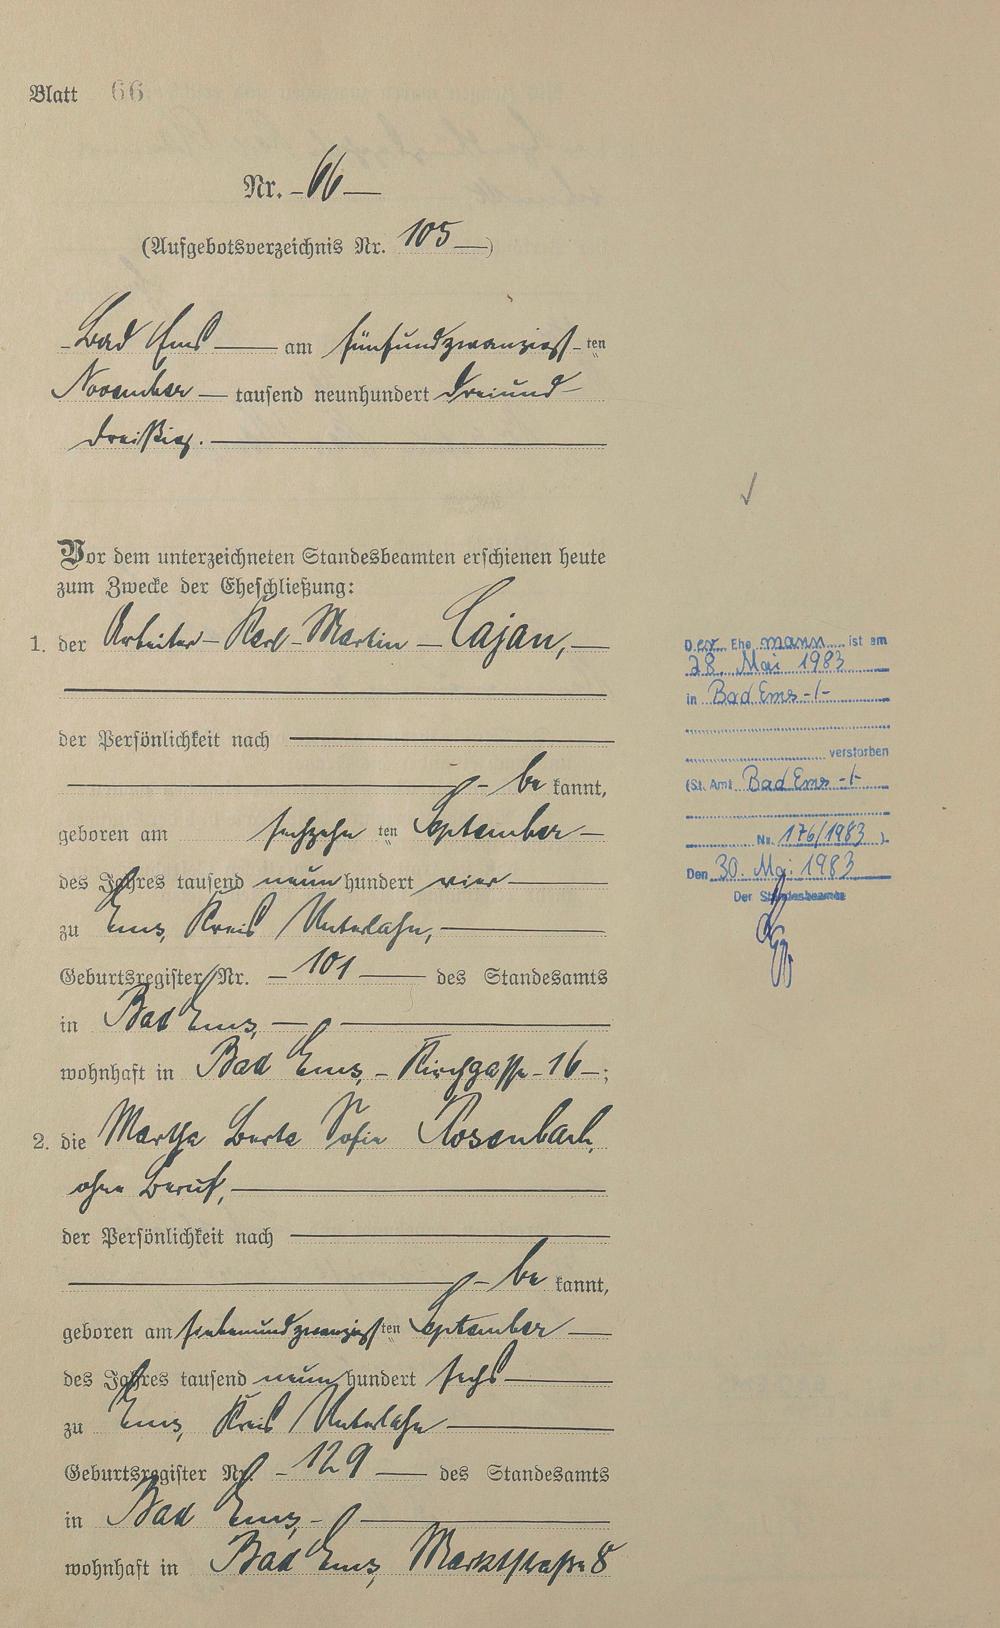 Blatt 66
Nr. 66
(Aufgebotsverzeichnis Nr. 105)
Bad Ems am fünfundzwanzigst ten
November tausend neunhundert dreiund
dreißig.
Vor dem unterzeichneten Standesbeamten erschienen heute
zum Zwecke der Eheschließung:
1. der Arbeiter Karl Martin Cajan,
der Persönlichkeit nach
be kannt,
geboren am sechzehn ten September
des Jahres tausend neun hundert vier
zu Ems, Kreis Unterlahn,
Geburtsregister Nr. 101 des Standesamts
in Bad Ems,
wohnhaft in Bad Ems, Kirchgasse 16;
2. die Martha Berta Sofie Rosenbach,
ohne Beruf,
der Persönlichkeit nach
be kannt,
geboren am siebenundzwanzigst ten September
des Jahres tausend neun hundert sechs
zu Ems, Kreis Unterlahn
Geburtsregister Nr. 129 des Standesamts
in Bad Ems,
wohnhaft in Bad Ems, Marktstraße 8
Der Ehe mann ist am
28. Mai 1983
in Bad Ems -/-
verstorben
(St. Amt Bad Ems -/-
Nr. 176/1983 ).
Den 30. Mai 1983
Der Standesbeamte